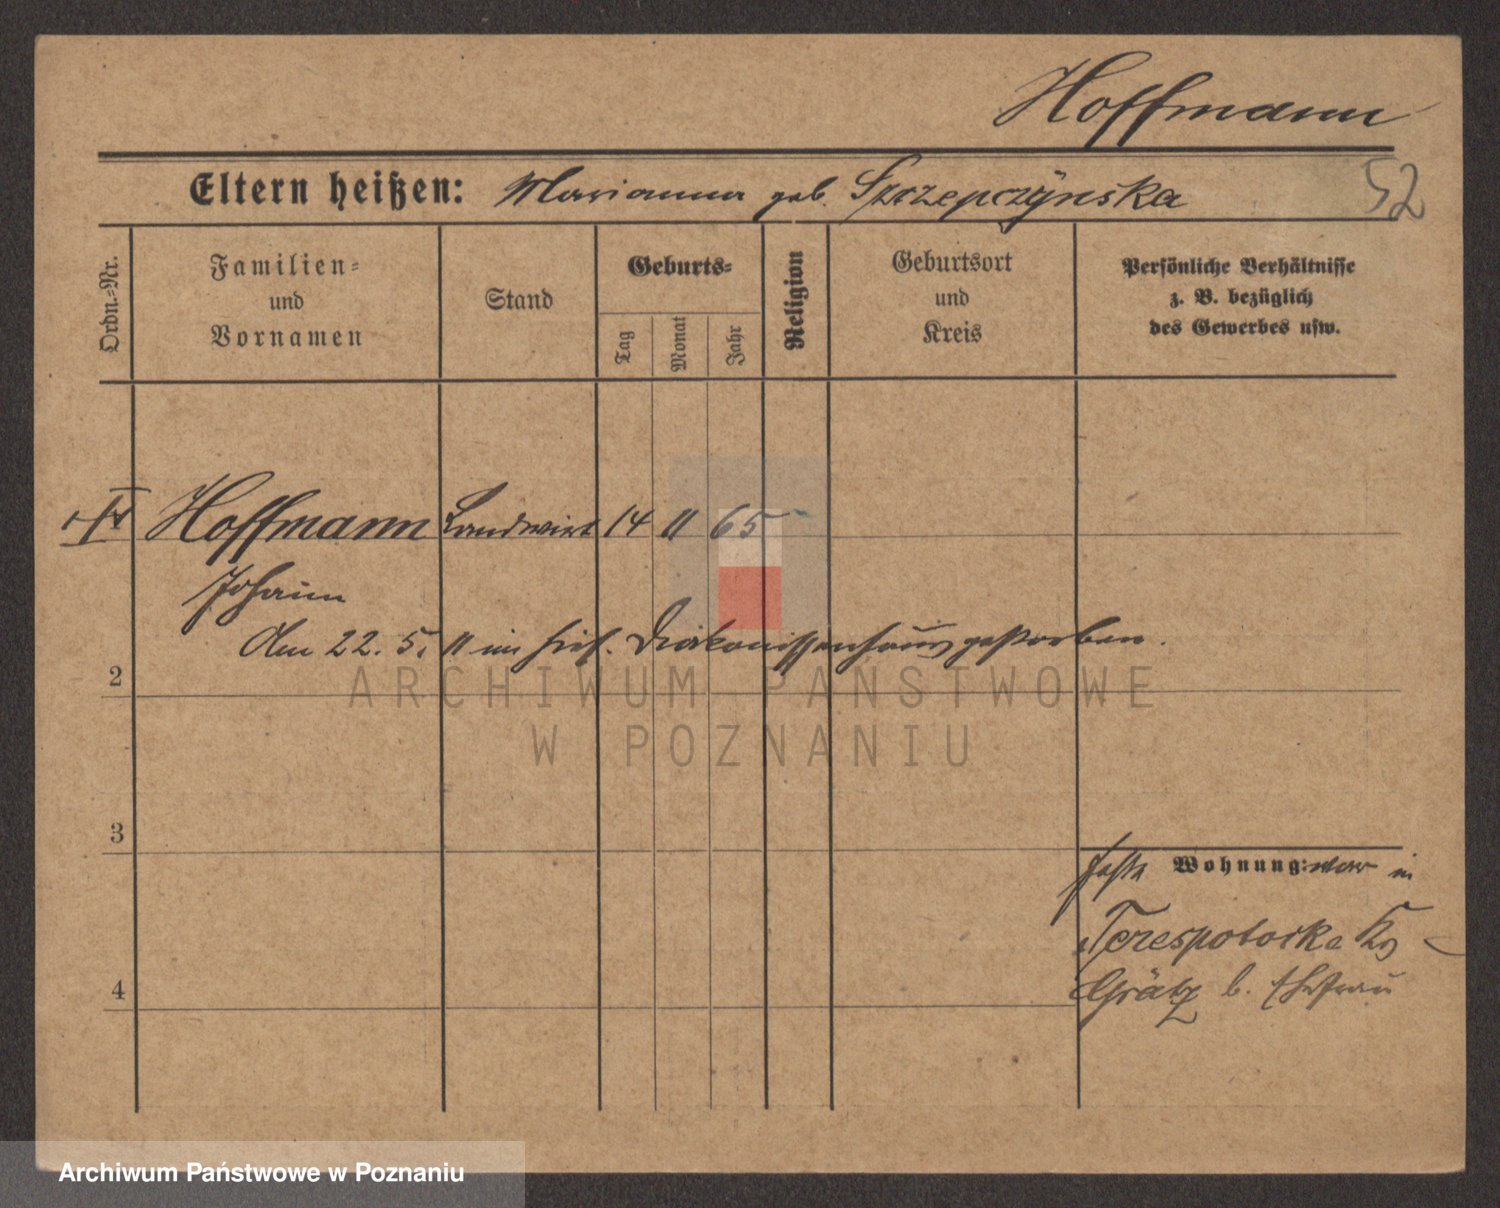 Hoffmann
Eltern heißen: Marianna geb. Szczepczÿnska
52
Ordn.=Nr.
Familien=
und
Vornamen
Stand
Geburts=
Tag
Monat
Jahr
Religion
Geburtsort
und
Kreis
Persönliche Verhältnisse
z. B. bezüglich
des Gewerbes usw.
Hoffmann Landwirt 14 11 65
Johann
Am 22. 5. 11 im hies. Diakonissenhaus gestorben.
2
3
4
feste Wohnung: war in
Terespotocke Kr
Grätz b. Ehefrau
ARCHIWUM PAŃSTWOWE
W POZNANIU
Archiwum Państwowe w Poznaniu